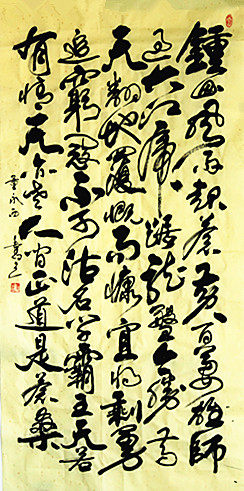 鍾山風雨起蒼黃百萬雄師
過大江虎踞龍盤今勝昔
天翻地覆慨而慷宜將剩勇
追窮寇不可沽名學霸王天若
有情天亦老人間正道是滄桑